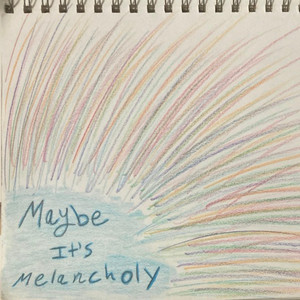 Maybe
It's
Melancholy